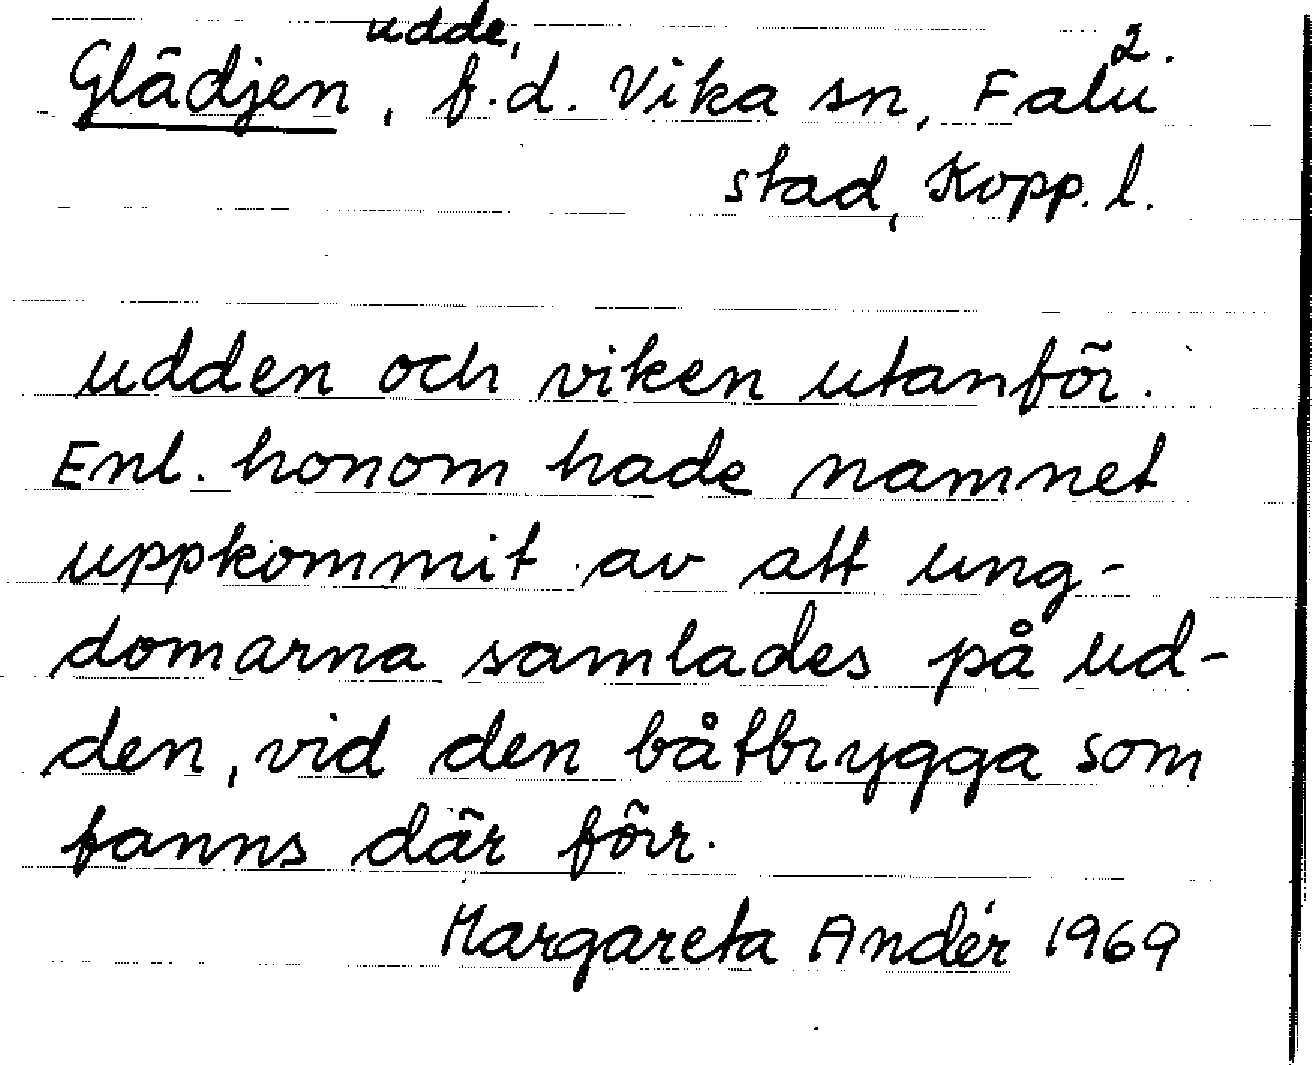 udde,
2.
Glädjen, f.d. Vika sn, Falu
stad, Kopp. l.
udden och viken utanför.
Enl. honom hade namnet
uppkommit av att ung-
domarna samlades på ud-
den, vid den båtbrygga som
fanns där förr.
Margareta Andér 1969